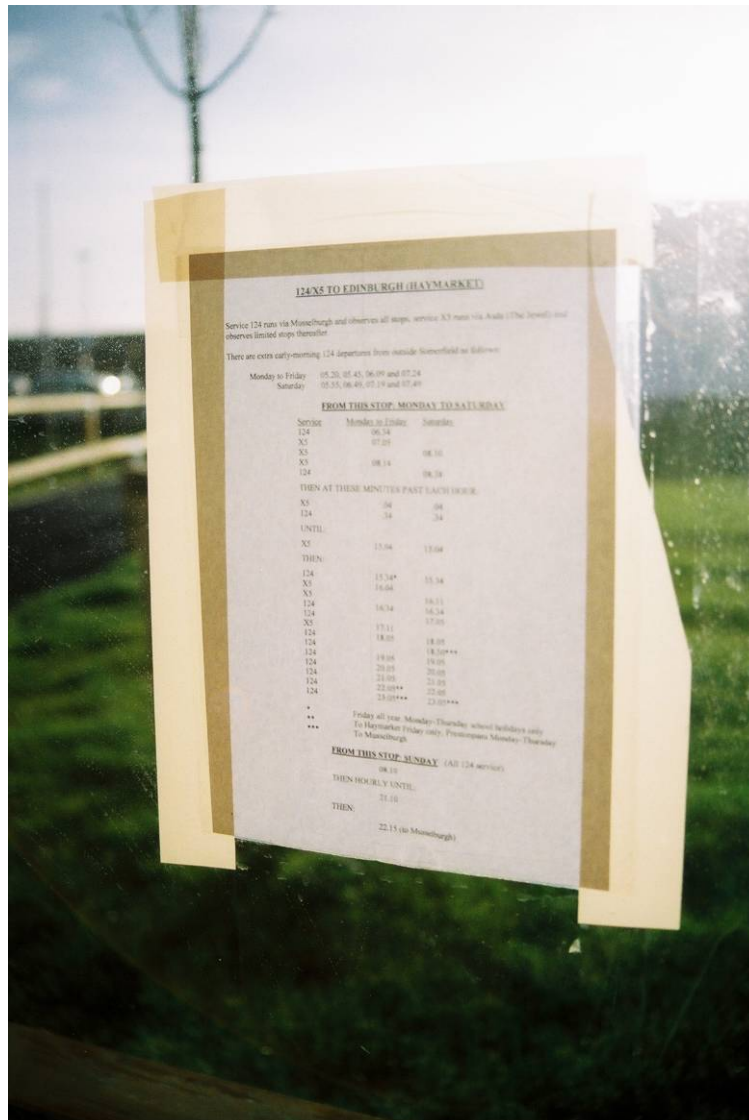 124/X5 TO EDINBURGH (HAYMARKET)
Service 124 runs via Musselburgh and observes all stops, service X5 runs via Asda (The Jewel) and
observes limited stops thereafter.
There are extra early-morning 124 departures from outside Somerfield as follows:
Monday to Friday 05.20, 05.45, 06.09 and 07.24
Saturday 05.55, 06.49, 07.19 and 07.49
FROM THIS STOP: MONDAY TO SATURDAY
Service Monday to Friday Saturday
124 06.34
X5 07.05
X5 08.10
X5 08.14
124 08.34
THEN AT THESE MINUTES PAST EACH HOUR:
X5 .04 .04
124 .34 .34
UNTIL:
X5 15.04 15.04
THEN:
124 15.34* 15.34
X5 16.04
X5
124 16.11
124 16.34 16.34
X5 17.05
124 17.11
124 18.05 18.05
124 18.50***
124 19.05 19.05
124 20.05 20.05
124 21.05 21.05
124 22.05** 22.05
23.05*** 23.05***
* Friday all year, Monday-Thursday school holidays only
** To Haymarket Friday only, Prestonpans Monday-Thursday
*** To Musselburgh
FROM THIS STOP: SUNDAY (All 124 service)
08.10
THEN HOURLY UNTIL:
21.10
THEN:
22.15 (to Musselburgh)